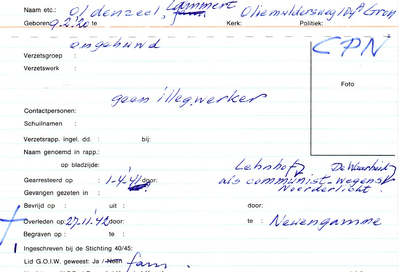 Naam etc.: Oldenzeel, Lammert Oliemuldersweg Gron
Geboren 9.2.'20 te Kerk: Politiek:
ongehuwd CPN
Verzetsgroep :
Verzetswerk : Foto
geen illeg. werker
Contactpersonen:
Schuilnaam :
Verzetsrapp. ingel. dd. : bij:
Naam genoemd in rapp.:
op bladzijde: Lehnhoff De Waarheid
Gearresteerd op : 1-4-'41 door: als communist - wegens
Gevangen gezeten in : Noorderlicht.
Bevrijd op : uit : door:
Overleden op : 27-11-'42 door: te : Neuengamme
Begraven op : te :
Ingeschreven bij de Stichting 40/45:
Lid G.O.I.W. geweest: Ja / Neen fam.